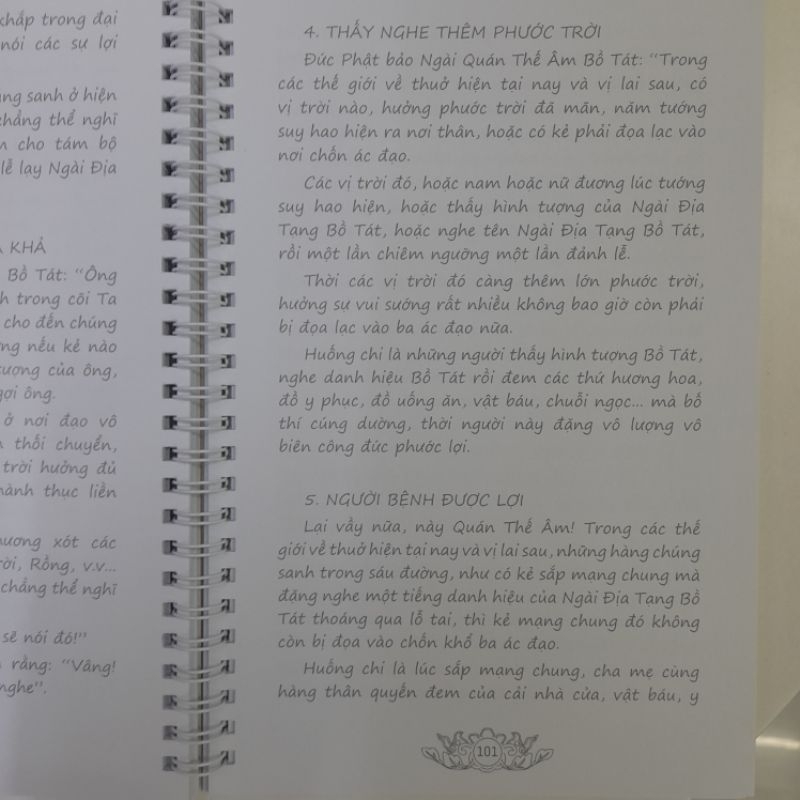 khắp trong đại
nói các sự lợi
sanh ở hiện
chẳng thể nghĩ
cho tám bộ
lễ lạy Ngài Địa
KHẢ
Bồ Tát: “Ông
trong cõi Ta
cho đến chúng
nếu kẻ nào
tượng của ông,
ông.
ở nơi đạo vô
thối chuyển,
trời hưởng đủ
thành thục liền
thương xót các
trời, Rồng, v.v...
chẳng thể nghĩ
sẽ nói đó!”
rằng: “Vâng!
nghe”.
4. THẤY NGHE THÊM PHƯỚC TRỜI
Đức Phật bảo Ngài Quán Thế Âm Bồ Tát: “Trong
các thế giới về thuở hiện tại nay và vị lai sau, có
vị trời nào, hưởng phước trời đã mãn, năm tướng
suy hao hiện ra nơi thân, hoặc có kẻ phải đọa lạc vào
nơi chốn ác đạo.
Các vị trời đó, hoặc nam hoặc nữ đương lúc tướng
suy hao hiện, hoặc thấy hình tượng của Ngài Địa
Tạng Bồ Tát, hoặc nghe tên Ngài Địa Tạng Bồ Tát,
rồi một lần chiêm ngưỡng một lần đảnh lễ.
Thời các vị trời đó càng thêm lớn phước trời,
hưởng sự vui sướng rất nhiều không bao giờ còn phải
bị đọa lạc vào ba ác đạo nữa.
Huống chi là những người thấy hình tượng Bồ Tát,
nghe danh hiệu Bồ Tát rồi đem các thứ hương hoa,
đồ y phục, đồ uống ăn, vật báu, chuỗi ngọc... mà bố
thí cúng dường, thời người này đặng vô lượng vô
biên công đức phước lợi.
5. NGƯỜI BỆNH ĐƯỢC LỢI
Lại vầy nữa, này Quán Thế Âm! Trong các thế
giới về thuở hiện tại nay và vị lai sau, những hàng chúng
sanh trong sáu đường, như có kẻ sắp mạng chung mà
đặng nghe một tiếng danh hiệu của Ngài Địa Tạng Bồ
Tát thoáng qua lỗ tai, thì kẻ mạng chung đó không
còn bị đọa vào chốn khổ ba ác đạo.
Huống chi là lúc sắp mạng chung, cha mẹ cùng
hàng thân quyến đem của cải nhà cửa, vật báu, y
101